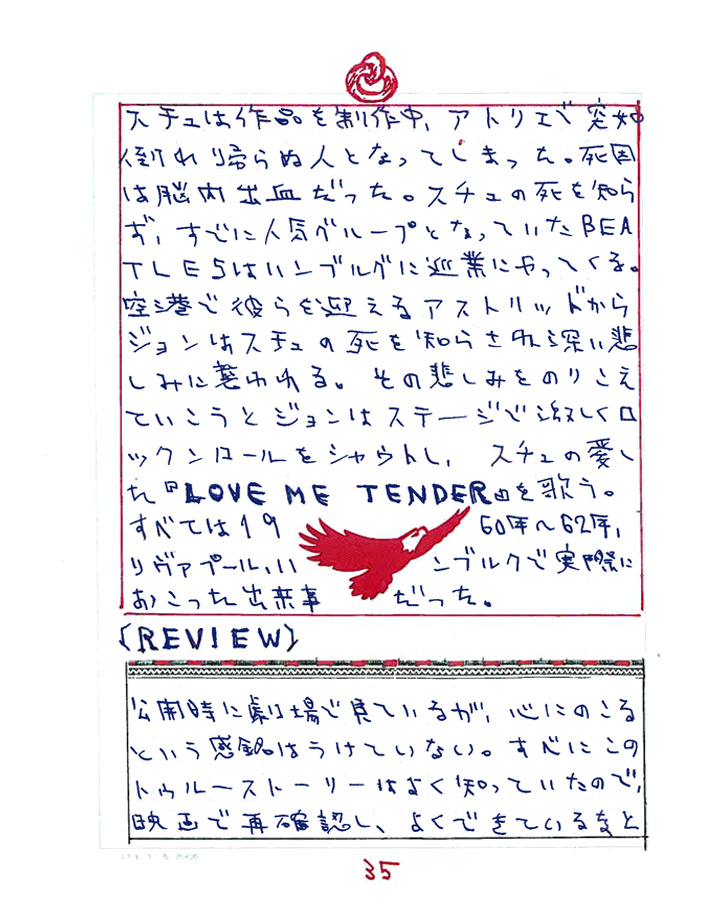 スチュは作品を制作中、アトリエで突如
倒れり帰らぬ人となってしまった。死因
は脳内出血だった。スチュの死を知ら
ず、すでに人気グループとなっていたBEA
TLESはハンブルグに巡業にやってくる。
空港で彼らを迎えるアストリッドから
ジョンはスチュの死を知らされ深い悲
しみに襲われる。その悲しみをのりこえ
ていこうとジョンはステージで激しくロ
ックンロールをシャウトし、スチュの愛し
た『LOVE ME TENDER』を歌う。
すべては19 60年〜62年、
リヴァプール、ハ ンブルクで実際に
おこった出来事 だった。
〔REVIEW〕
公開時に劇場で見ているが、心にのこる
という感銘はうけていない。すべにこの
トゥルーストーリーはよく知っていたので、
映画で再確認し、よくできているなと
35